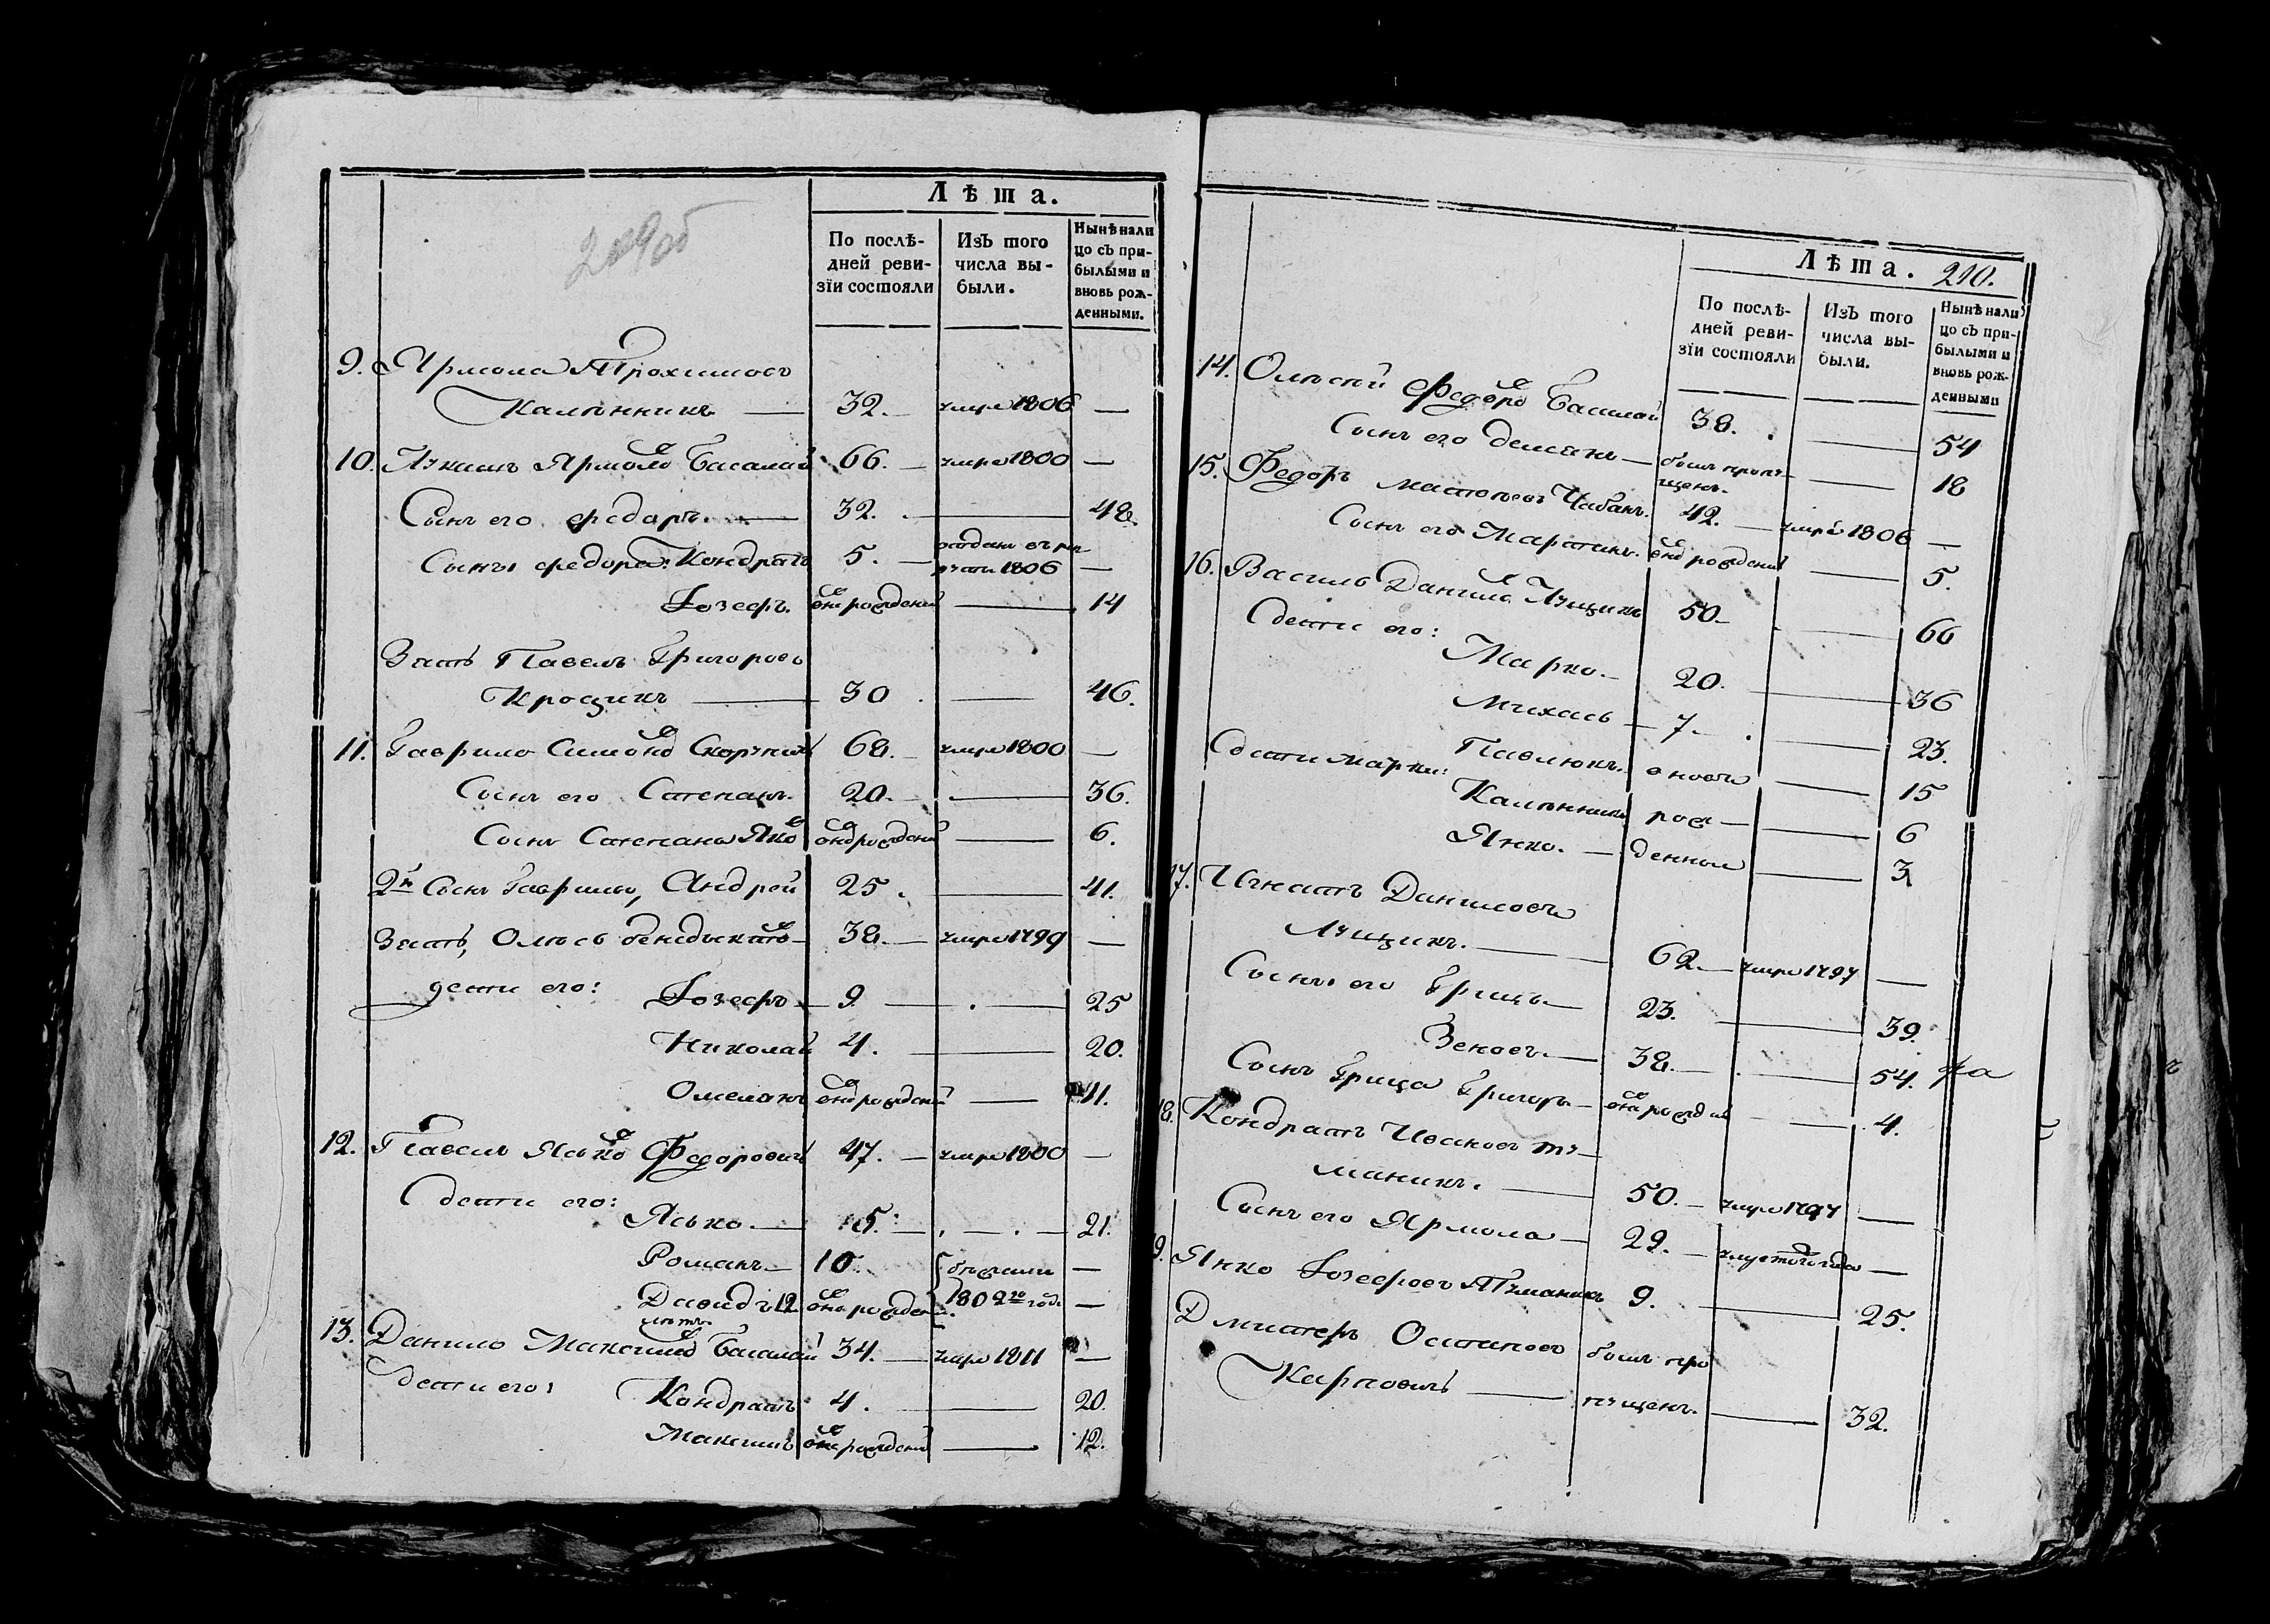 209об
Лѣта.
По послѣ-
дней реви-
зїи состояли
Изъ того
числа вы-
были.
Нынѣ нали
цо съ при-
былыми и
вновь рож-
денными.
9. Ярмола Трохимовъ
Калѣнникъ — 32. — умре 1806 —
10. Лукашъ Ярмоловъ Басалай 66. — умре 1800 —
Сынъ его Федоръ. — 32. — 48.
Сынъ Федора: Кондратъ 5. — отданъ въ рек
руты 1806 —
Іозефъ. вновь рожденный — 14
Зять Павелъ Григоровъ
Крощикъ — 30 — 46.
11. Гаврило Симоновъ 68. — умре 1800 —
Сынъ его Степанъ. 20. — 36.
Сынъ Степана Янко вновь рожденый — 6.
2й Сынъ Гаврилы, Андрей 25. — 41.
Зять, Олесь Бенедыктовъ — 38. — умре 1799 —
дети его: Іозефъ — 9 — 25
Николай 4. — 20.
Омелянъ вновь рожденый — 11.
12. Павелъ Яськовъ Федоровичъ 47. — умре 1800 —
дети его:
Ясько. — 5. — 21.
Романъ — 10. бежали —
Давидъ 12 вновь рожден. 1802го года —
летъ.
13. Данило Максимовъ Басалай 34. — умре 1811 —
дети его: Кондратъ 4. — 20.
Максимъ вновь рожденый — 12.
Лѣта. 210.
По послѣ-
дней реви-
зїи состояли
Изъ того
числа вы-
были.
Нынѣ нали
цо съ при-
былыми и
вновь рож-
денными
14. Олексей Федоровъ Басалай 38. — 54
Сынъ его Демянъ — былъ пропу-
щенъ. — 18
15. Федоръ Матвеевъ Чабанъ. 42. — умре 1806 —
Сынъ его Мартинъ. вновь рожденый — 5.
16. Василь Данилов Лущикъ 50. — 66
дети его:
Марко. — 20. — 36
Михась — 7. — 23.
дети Марки: Павлюкъ. вновь — 15
Калѣнникъ рож — 6
Янко. — денные — 3
17. Игнатъ Даниловъ
Лущикъ. — 62. — умре 1797 —
Сынъ его Грицъ — 23. — 39.
Зеновъ. — 38. — 54.
Сынъ Грица Григоръ — вновь рожденый — 4.
18. Кондратъ Ивановъ Ту-
маникъ. — 50. — умре 1797 —
Сынъ его Ярмола — 29. — —
9. Янко Іозефовъ Туманикъ 9. — 25.
Дмитеръ Остаповъ былъ про
Карповичъ — пущенъ. — 32.